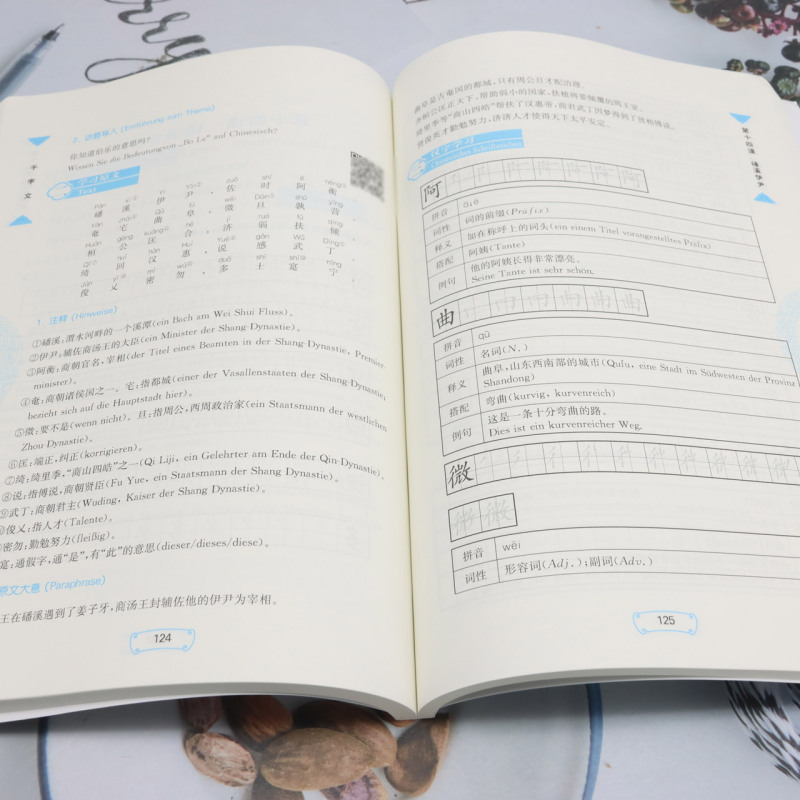 千字文
2. 话题导入 (Einführung zum Thema)
你知道伯乐的意思吗?
Wissen Sie die Bedeutung von „Bo Le" auf Chinesisch?
学习原文
Text
磻溪伊尹,佐时阿衡。
奄宅曲阜,微旦孰营。
桓公匡合,济弱扶倾。
绮回汉惠,说感武丁。
俊乂密勿,多士寔宁。
1. 注释 (Hinweise)
①磻溪:渭水河畔的一个溪潭(ein Bach am Wei Shui Fluss)。
②伊尹:辅佐商汤王的大臣(ein Minister der Shang-Dynastie)。
③阿衡:商朝官名,宰相(der Titel eines Beamten in der Shang-Dynastie, Premier-
minister)。
④奄:商朝诸侯国之一。宅:指都城(einer der Vasallenstaaten der Shang-Dynastie;
bezieht sich auf die Hauptstadt hier)。
⑤微:要不是(wenn nicht)。旦:指周公,西周政治家(ein Staatsmann der westlichen
Zhou-Dynastie)。
⑥匡:端正,纠正(korrigieren)。
⑦绮:绮里季,“商山四皓”之一(Qi Liji, ein Gelehrter am Ende der Qin-Dynastie)。
⑧说:指傅说,商朝贤臣(Fu Yue, ein Staatsmann der Shang Dynastie)。
⑨武丁:商朝君主(Wuding, Kaiser der Shang Dynastie)。
俊乂:指人才(Talente)。
密勿:勤勉努力(fleißig)。
寔:通假字,通“是”,有“此”的意思(dieser/dieses/diese)。
原文大意 (Paraphrase)
王在磻溪遇到了姜子牙,商汤王封辅佐他的伊尹为宰相。
124
曲阜是古奄国的都城,只有周公旦才配治理。
齐桓公匡正天下,帮助弱小的国家,扶植将要倾覆的周王室。
绮里季等“商山四皓”帮扶了汉惠帝,商君武丁因梦得到了贤相傅说。
贤俊英才勤勉努力,济济人才使得天下太平安定。
汉字学习
第十四课 磻溪伊尹
阿
拼音 ā;ē
词性 词的前缀(Präfix)
释义 加在称呼上的词头(ein einem Titel vorangestelltes Präfix)
搭配 阿姨(Tante)
例句 他的阿姨长得非常漂亮。
Seine Tante ist sehr schön.
曲
拼音 qū
词性 名词(N.)
释义 曲阜,山东西南部的城市(Qufu, eine Stadt im Südwesten der Provinz
Shandong)
搭配 弯曲(kurvig, kurvenreich)
例句 这是一条十分弯曲的路。
Dies ist ein kurvenreicher Weg.
微
拼音 wēi
词性 形容词(Adj.);副词(Adv.)
125